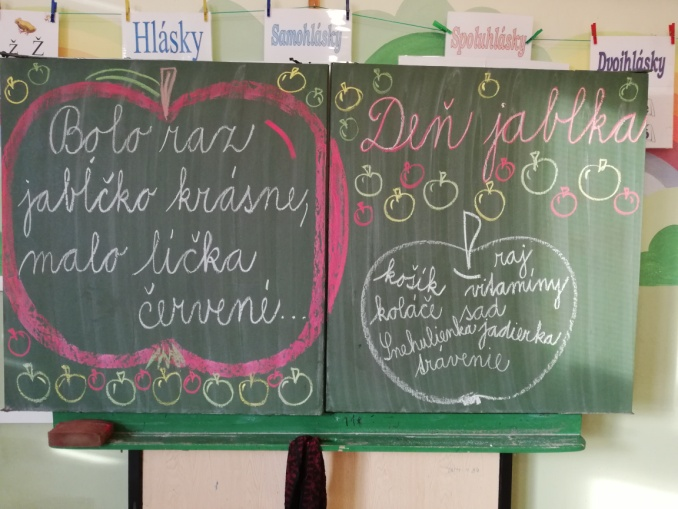 Ž Ž
Hlásky
Samohlásky
Spoluhlásky
Dvojhlásky
Bolo raz
jabĺčko krásne,
malo líčka
červené...
Deň jablka
raj
košík vitamíny
koláče sad
Snehulienka jadierka
trávenie